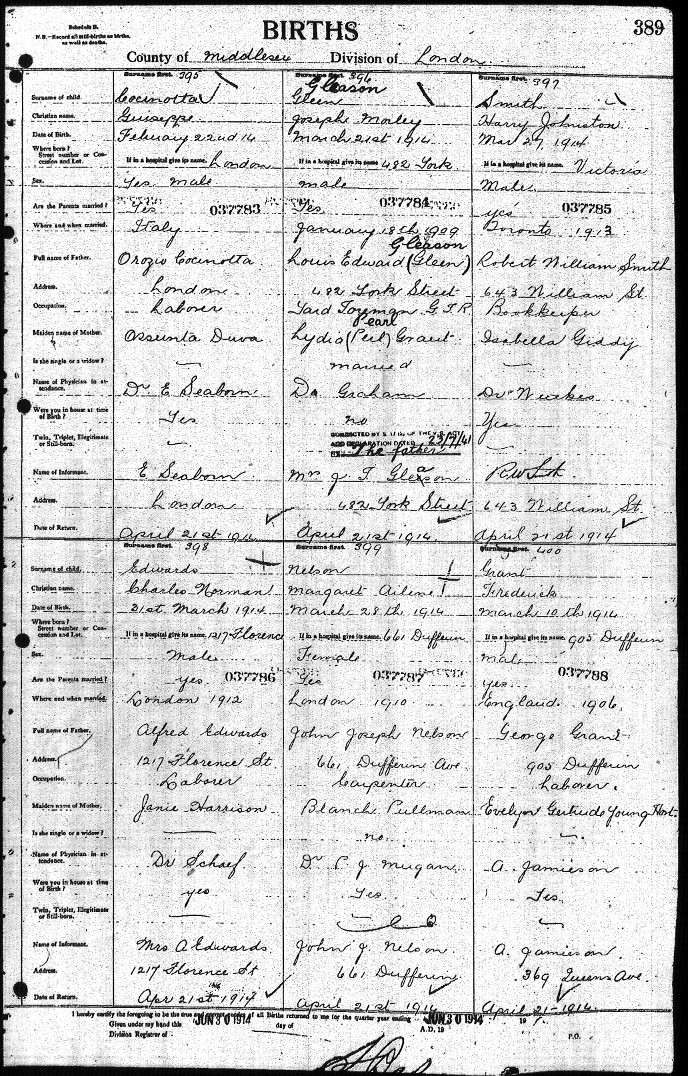 Schedule B.
N. B.—Record all still-births as births, as well as deaths.
BIRTHS
389
County of Middlesex Division of London
Surname first. 395 Surname first. 396 Surname first. 397
Gleason
Surname of child. Cocinotta Gleen Smith
Christian name. Guiseppe Joseph Morley Harry Johnston
Date of Birth. February 22nd 14 March 21st 1914 Mar 27, 1914
Where born? Street number or Concession and Lot. If in a hospital give its name. London If in a hospital give its name 482 York If in a hospital give its name. Victoria
Sex. Yes male male Male
Are the Parents married? Yes 037783 Yes 037784 yes 037785
Where and when married. Italy January 18th 1909 Toronto 1913
Gleason
Full name of Father. Orozio Cocinotta Louis Edward (Gleen) Robert William Smith
Address. London 482 York Street 643 William St
Occupation. Laborer Yard Foreman G.T.R Bookkeeper
Pearl
Maiden name of Mother. Assunta Duva Lydia (Perl) Grant Isabella Giddy
Is she single or a widow? — married —
Name of Physician in attendance. Dr E Seaborn Dr Graham Dr Weekes
Were you in house at time of Birth? Yes no Yes
CORRECTED BY S. 17 (6) OF THE V. S. ACT
AND DECLARATION DATED 23/7/41
BY The father
Twin, Triplet, Illegitimate or Still-born. — —
Name of Informant. E Seaborn Mrs J. T. Gleason R W Smith
Address. London 482 York Street 643 William St.
Date of Return. April 21st 1914 April 21st 1914 April 21st 1914
Surname first. 398 Surname first. 399 Surname first. 400
Surname of child. Edwards Nelson Grant
Christian name. Charles Norman Margaret Ailene Frederick
Date of Birth. 21st March 1914 March 28th 1914 March 10th 1914
Where born? Street number or Concession and Lot. If in a hospital give its name. 1217 Florence If in a hospital give its name. 661 Dufferin If in a hospital give its name. 905 Dufferin
Sex. Male Female male
Are the Parents married? yes 037786 Yes 037787 yes 037788
Where and when married. London 1912 London 1910 England 1906
Full name of Father. Alfred Edwards John Joseph Nelson George Grant
Address. 1217 Florence St 661 Dufferin Ave 905 Dufferin
Occupation. Laborer Carpenter Laborer.
Maiden name of Mother. Janie Harrison Blanch Pullman Evelyn Gertrude Young
Is she single or a widow? — no —
Name of Physician in attendance. Dr Schaef Dr P. J. Mugan A. Jamieson
Were you in house at time of Birth? yes Yes Yes
Twin, Triplet, Illegitimate or Still-born. — — —
Name of Informant. Mrs A Edwards John J. Nelson A. Jamieson
Address. 1217 Florence St 661 Dufferin 369 Queens Ave
Date of Return. Apr 21st 1914 April 21st 1914 April 21-1914
I hereby certify the foregoing to be the true and correct record of all Births returned to me for the quarter year ending JUN 30 1914 19
Given under my hand this JUN 30 1914 day of A.D. 19
Division Registrar of P.O.